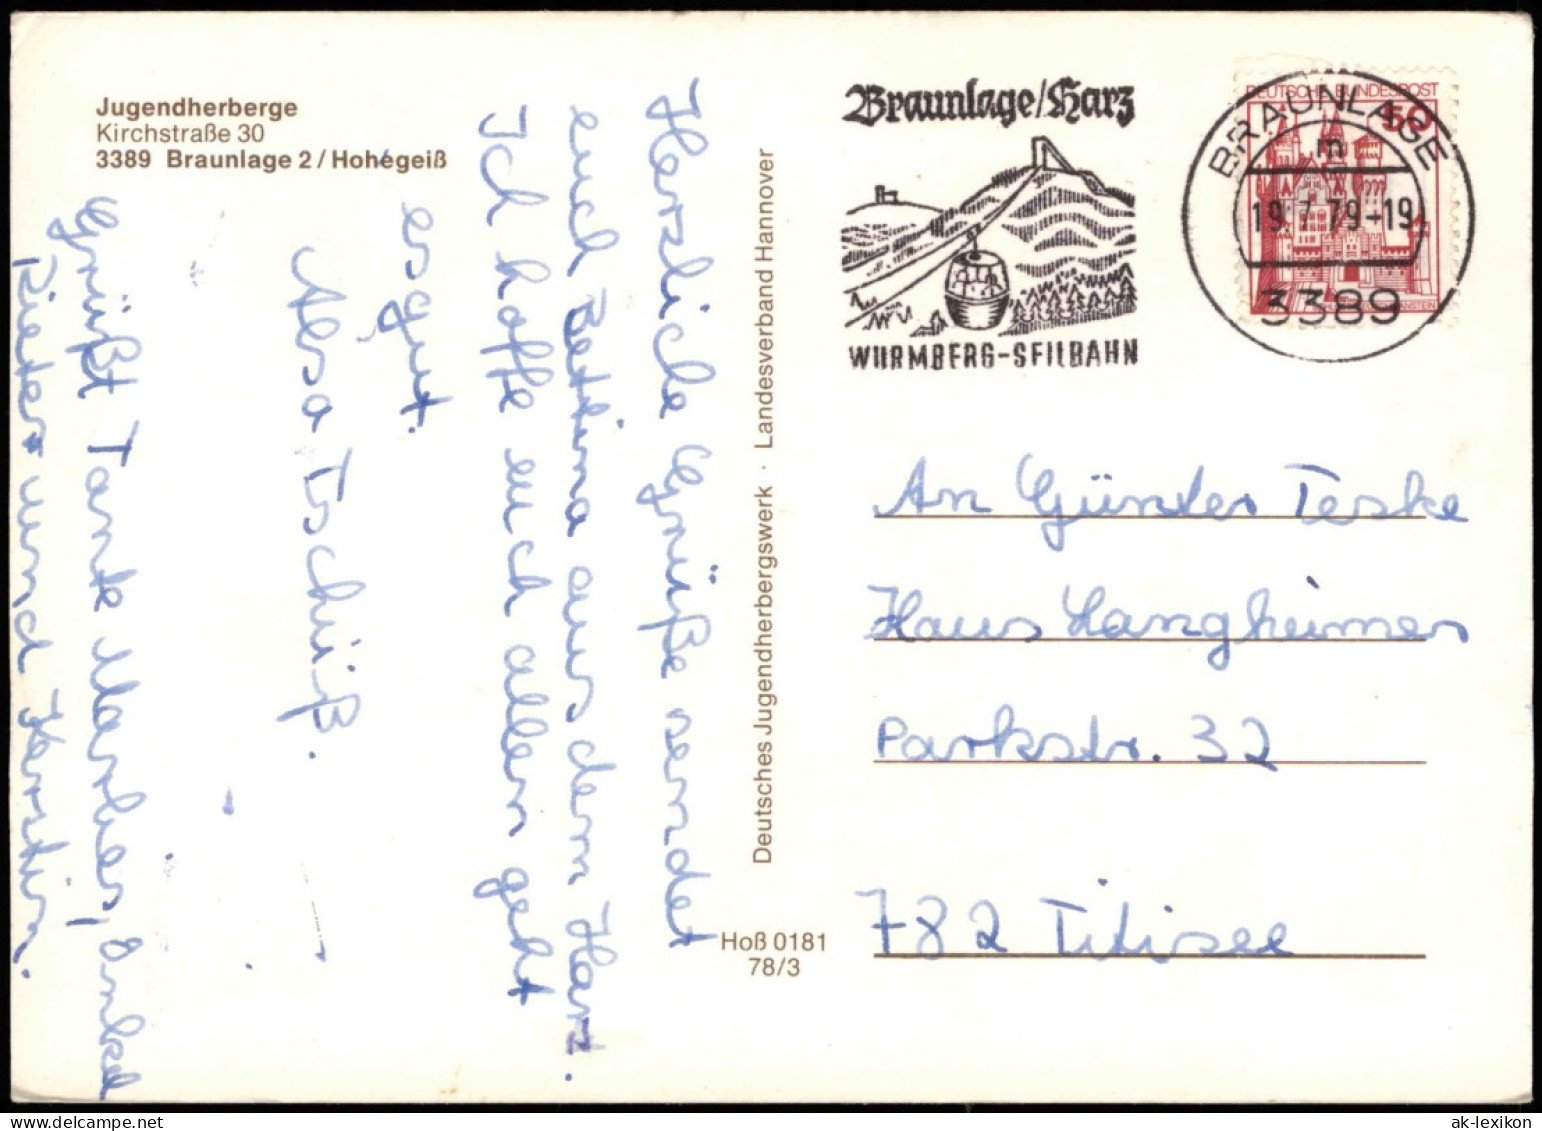 Jugendherberge
Kirchstraße 30
3389 Braunlage 2 / Hohegeiß
Herzliche Grüße sendet
euch Bettina aus dem Harz.
Ich hoffe euch allen geht
esgut.
Also Tschüß.
Grüßt Tante Marlies, Onkel
Dieter und Kerstin.
Deutsches Jugendherbergswerk · Landesverband Hannover
Hoß 0181
78/3
Braunlage/Harz
WURMBERG-SEILBAHN
DEUTSCHE BUNDESPOST
50
BRAUNLAGE
m
19.7.79-19
3389
An Günter Teske
Haus Langheimer
Parkstr. 32
782 Titisee
ak-lexikon